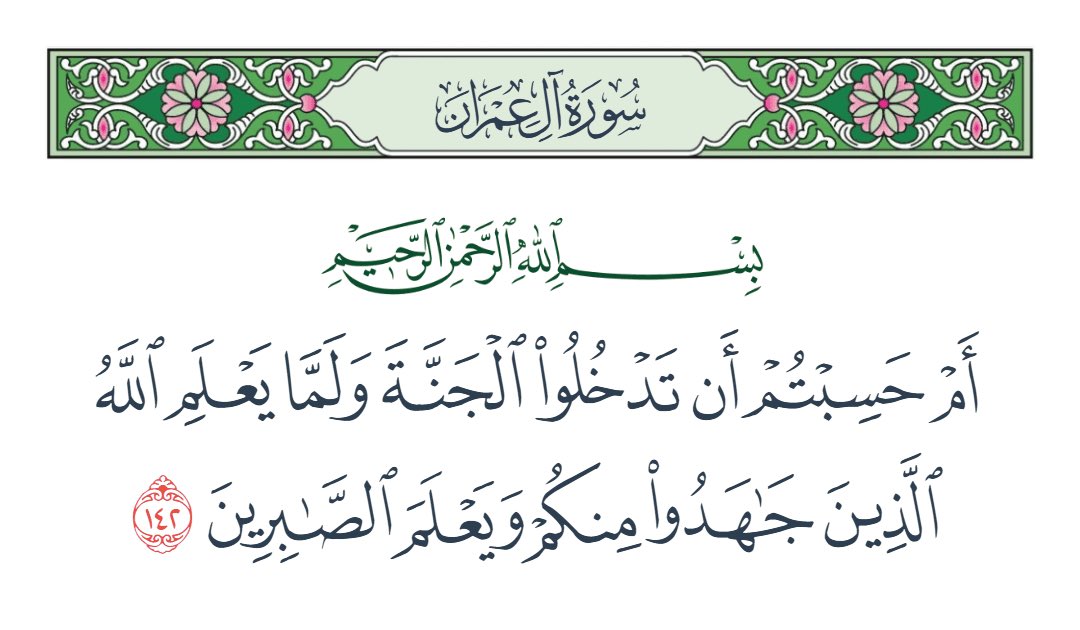 سُورَةُ آلِ عِمْرَانَ
بِسْمِ ٱللَّهِ ٱلرَّحْمَٰنِ ٱلرَّحِيمِ
أَمْ حَسِبْتُمْ أَن تَدْخُلُوا۟ ٱلْجَنَّةَ وَلَمَّا يَعْلَمِ ٱللَّهُ
ٱلَّذِينَ جَـٰهَدُوا۟ مِنكُمْ وَيَعْلَمَ ٱلصَّـٰبِرِينَ ١٤٢